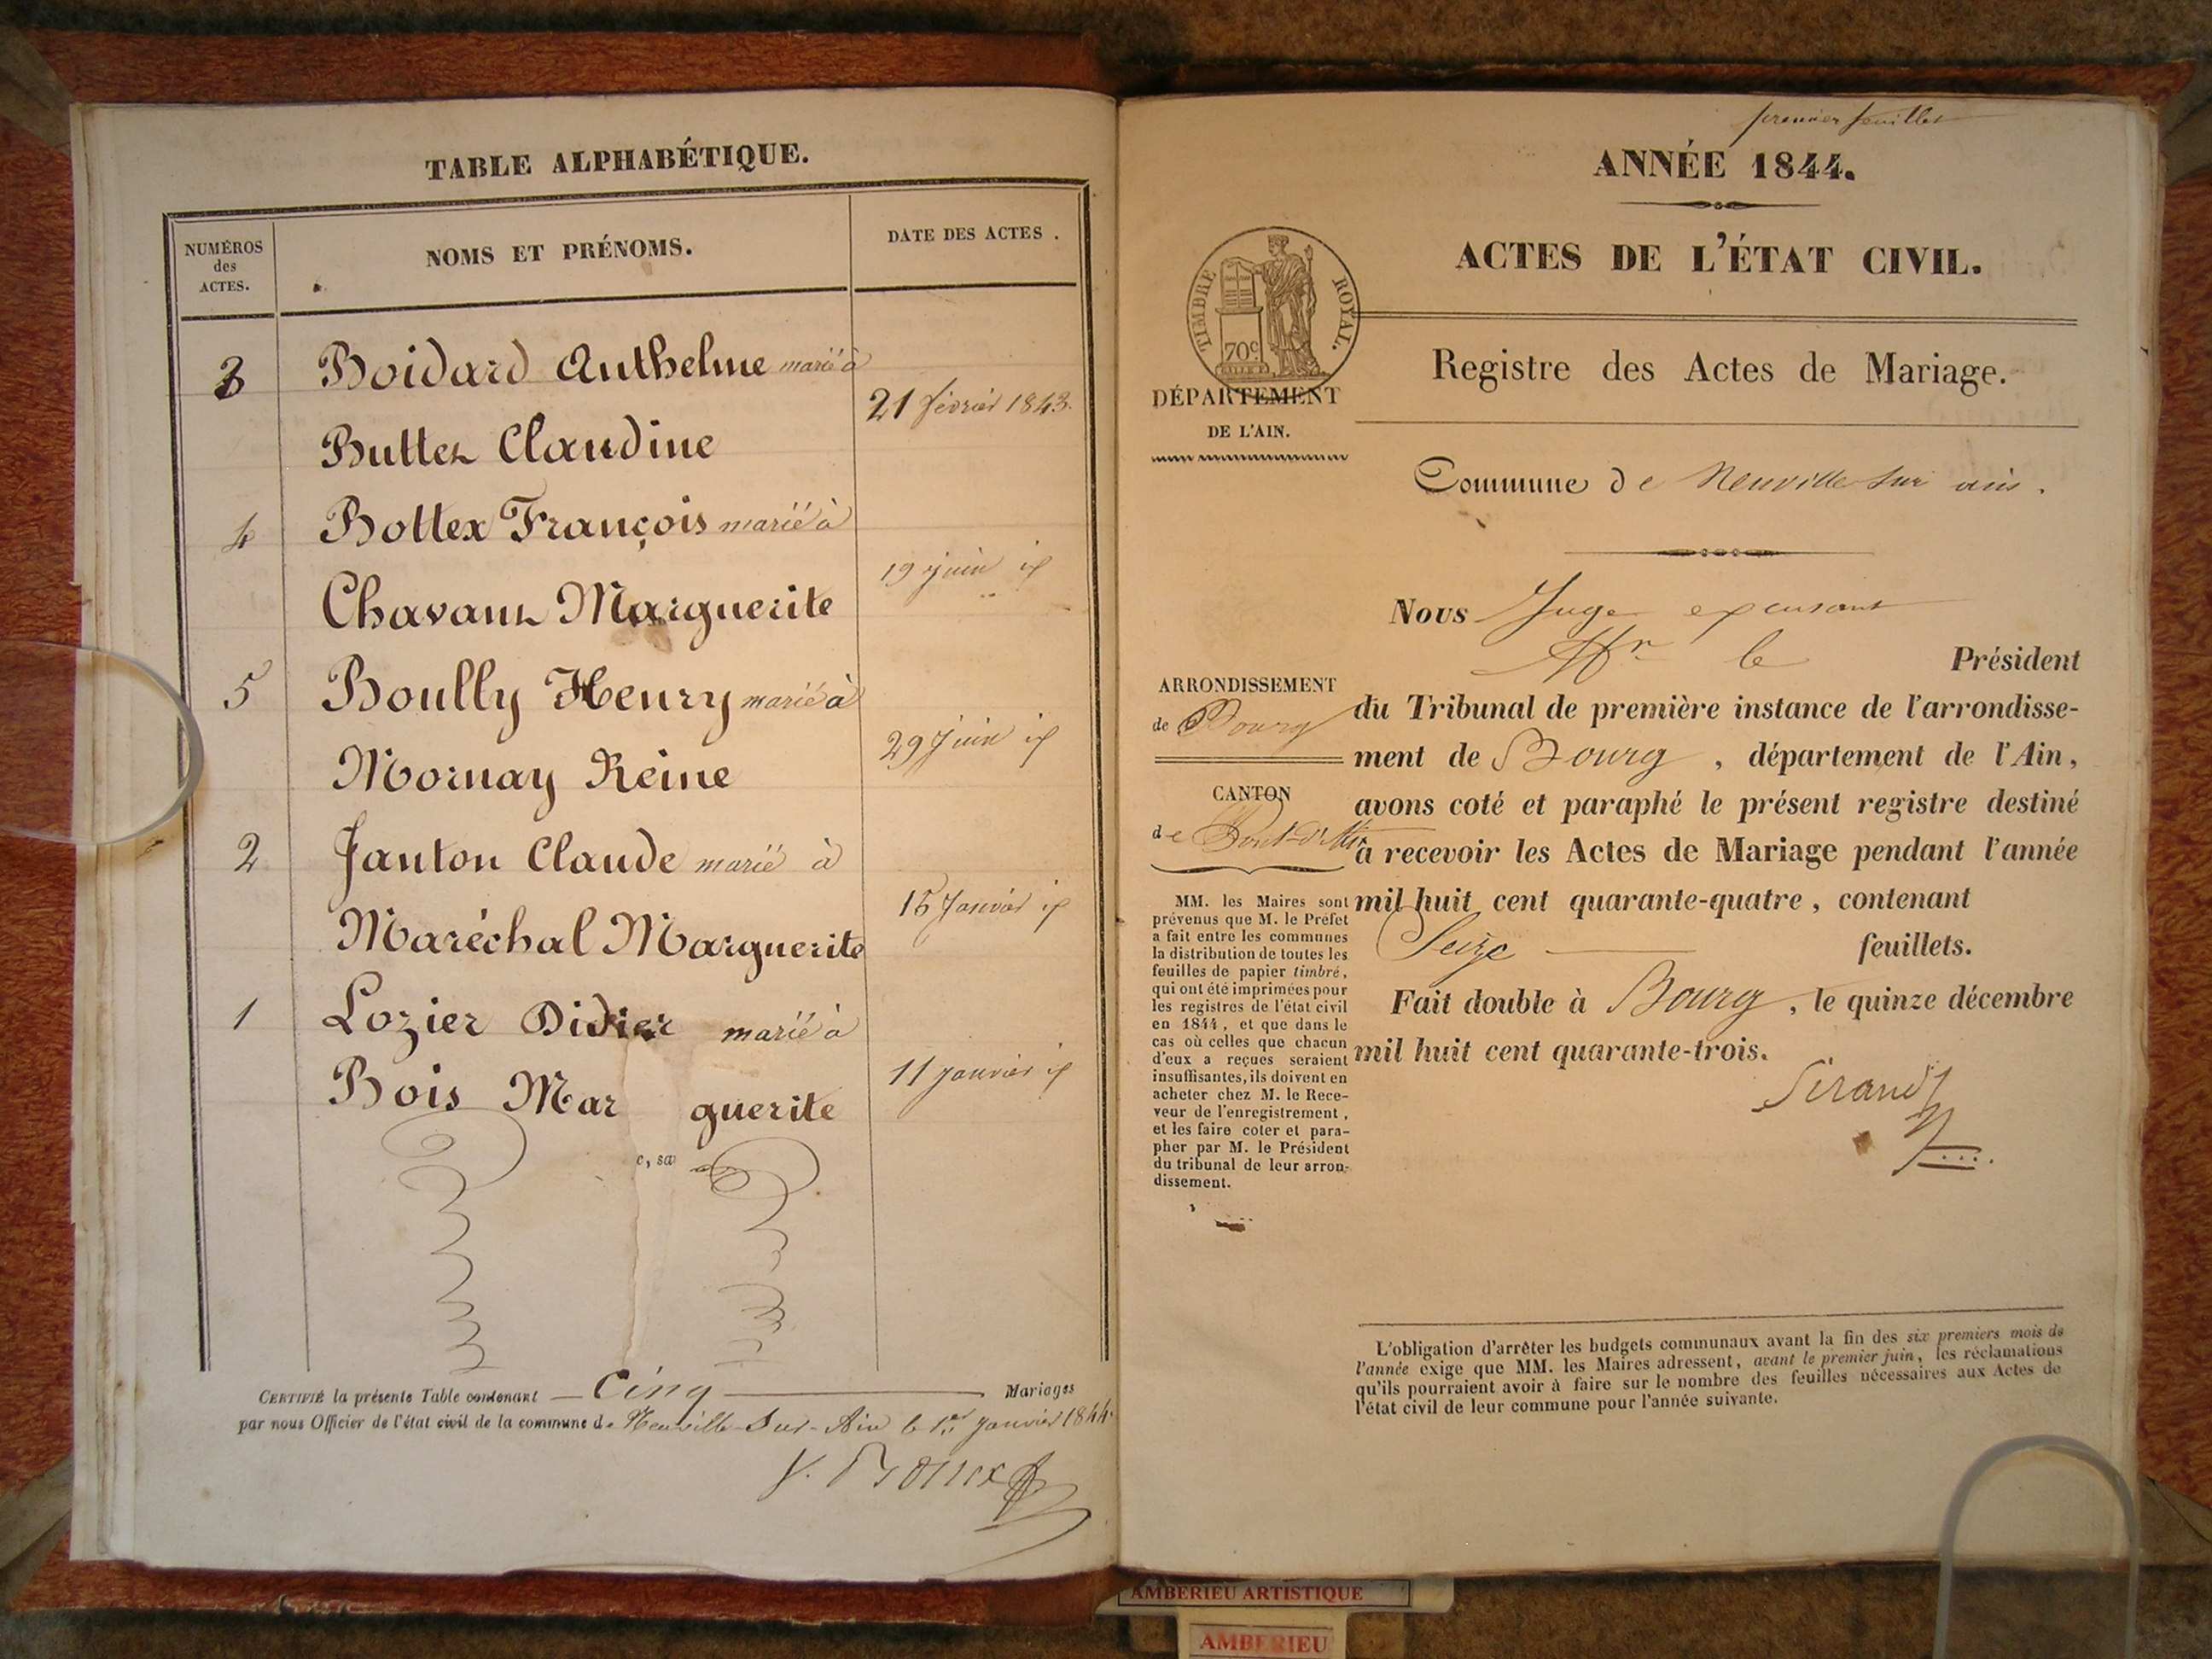 TABLE ALPHABÉTIQUE.
NUMÉROS
des
ACTES.
NOMS ET PRÉNOMS.
DATE DES ACTES .
3 Boidard Anthelme marié à
21 février 1843.
Buttex Claudine
4 Bottex François marié à
19 juin id
Chavant Marguerite
5 Boully Henry marié à
29 Juin id
Mornay Reine
2 Janton Claude marié à
Janvier id
Maréchal Marguerite
1 Lozier Didier marié à
11 janvier id
Bois Mar guerite
c, sa
CERTIFIÉ la présente Table contenant Cinq Mariages
par nous Officier de l'état civil de la commune de Neuville-Sur-Ain le 1er janvier 1844.
premier feuillet
ANNÉE 1844.
ACTES DE L'ÉTAT CIVIL.
TIMBRE ROYAL.
70c
DÉPARTEMENT
DE L'AIN.
Registre des Actes de Mariage.
Commune de Neuville sur ain.
Nous Juge
Mr le Président
ARRONDISSEMENT
de Bourg
CANTON
de Pont-d'Ain
du Tribunal de première instance de l'arrondisse-
ment de Bourg , département de l'Ain,
avons coté et paraphé le présent registre destiné
à recevoir les Actes de Mariage pendant l'année
mil huit cent quarante-quatre, contenant
Seize feuillets.
Fait double à Bourg, le quinze décembre
mil huit cent quarante-trois.
MM. les Maires sont
prévenus que M. le Préfet
a fait entre les communes
la distribution de toutes les
feuilles de papier timbré,
qui ont été imprimées pour
les registres de l'état civil
en 1844, et que dans le
cas où celles que chacun
d'eux a reçues seraient
insuffisantes, ils doivent en
acheter chez M. le Rece-
veur de l'enregistrement,
et les faire coter et para-
pher par M. le Président
du tribunal de leur arron-
dissement.
L'obligation d'arrêter les budgets communaux avant la fin des six premiers mois de
l'année exige que MM. les Maires adressent, avant le premier juin, les réclamations
qu'ils pourraient avoir à faire sur le nombre des feuilles nécessaires aux Actes de
l'état civil de leur commune pour l'année suivante.
AMBERIEU ARTISTIQUE
AMBERIEU